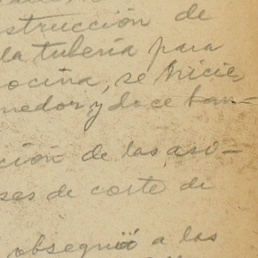 strucción de
la tubería para
ocina, se hicie
medor, y doce ban-
ción de las aso-
ses de corte de
obsequió a las